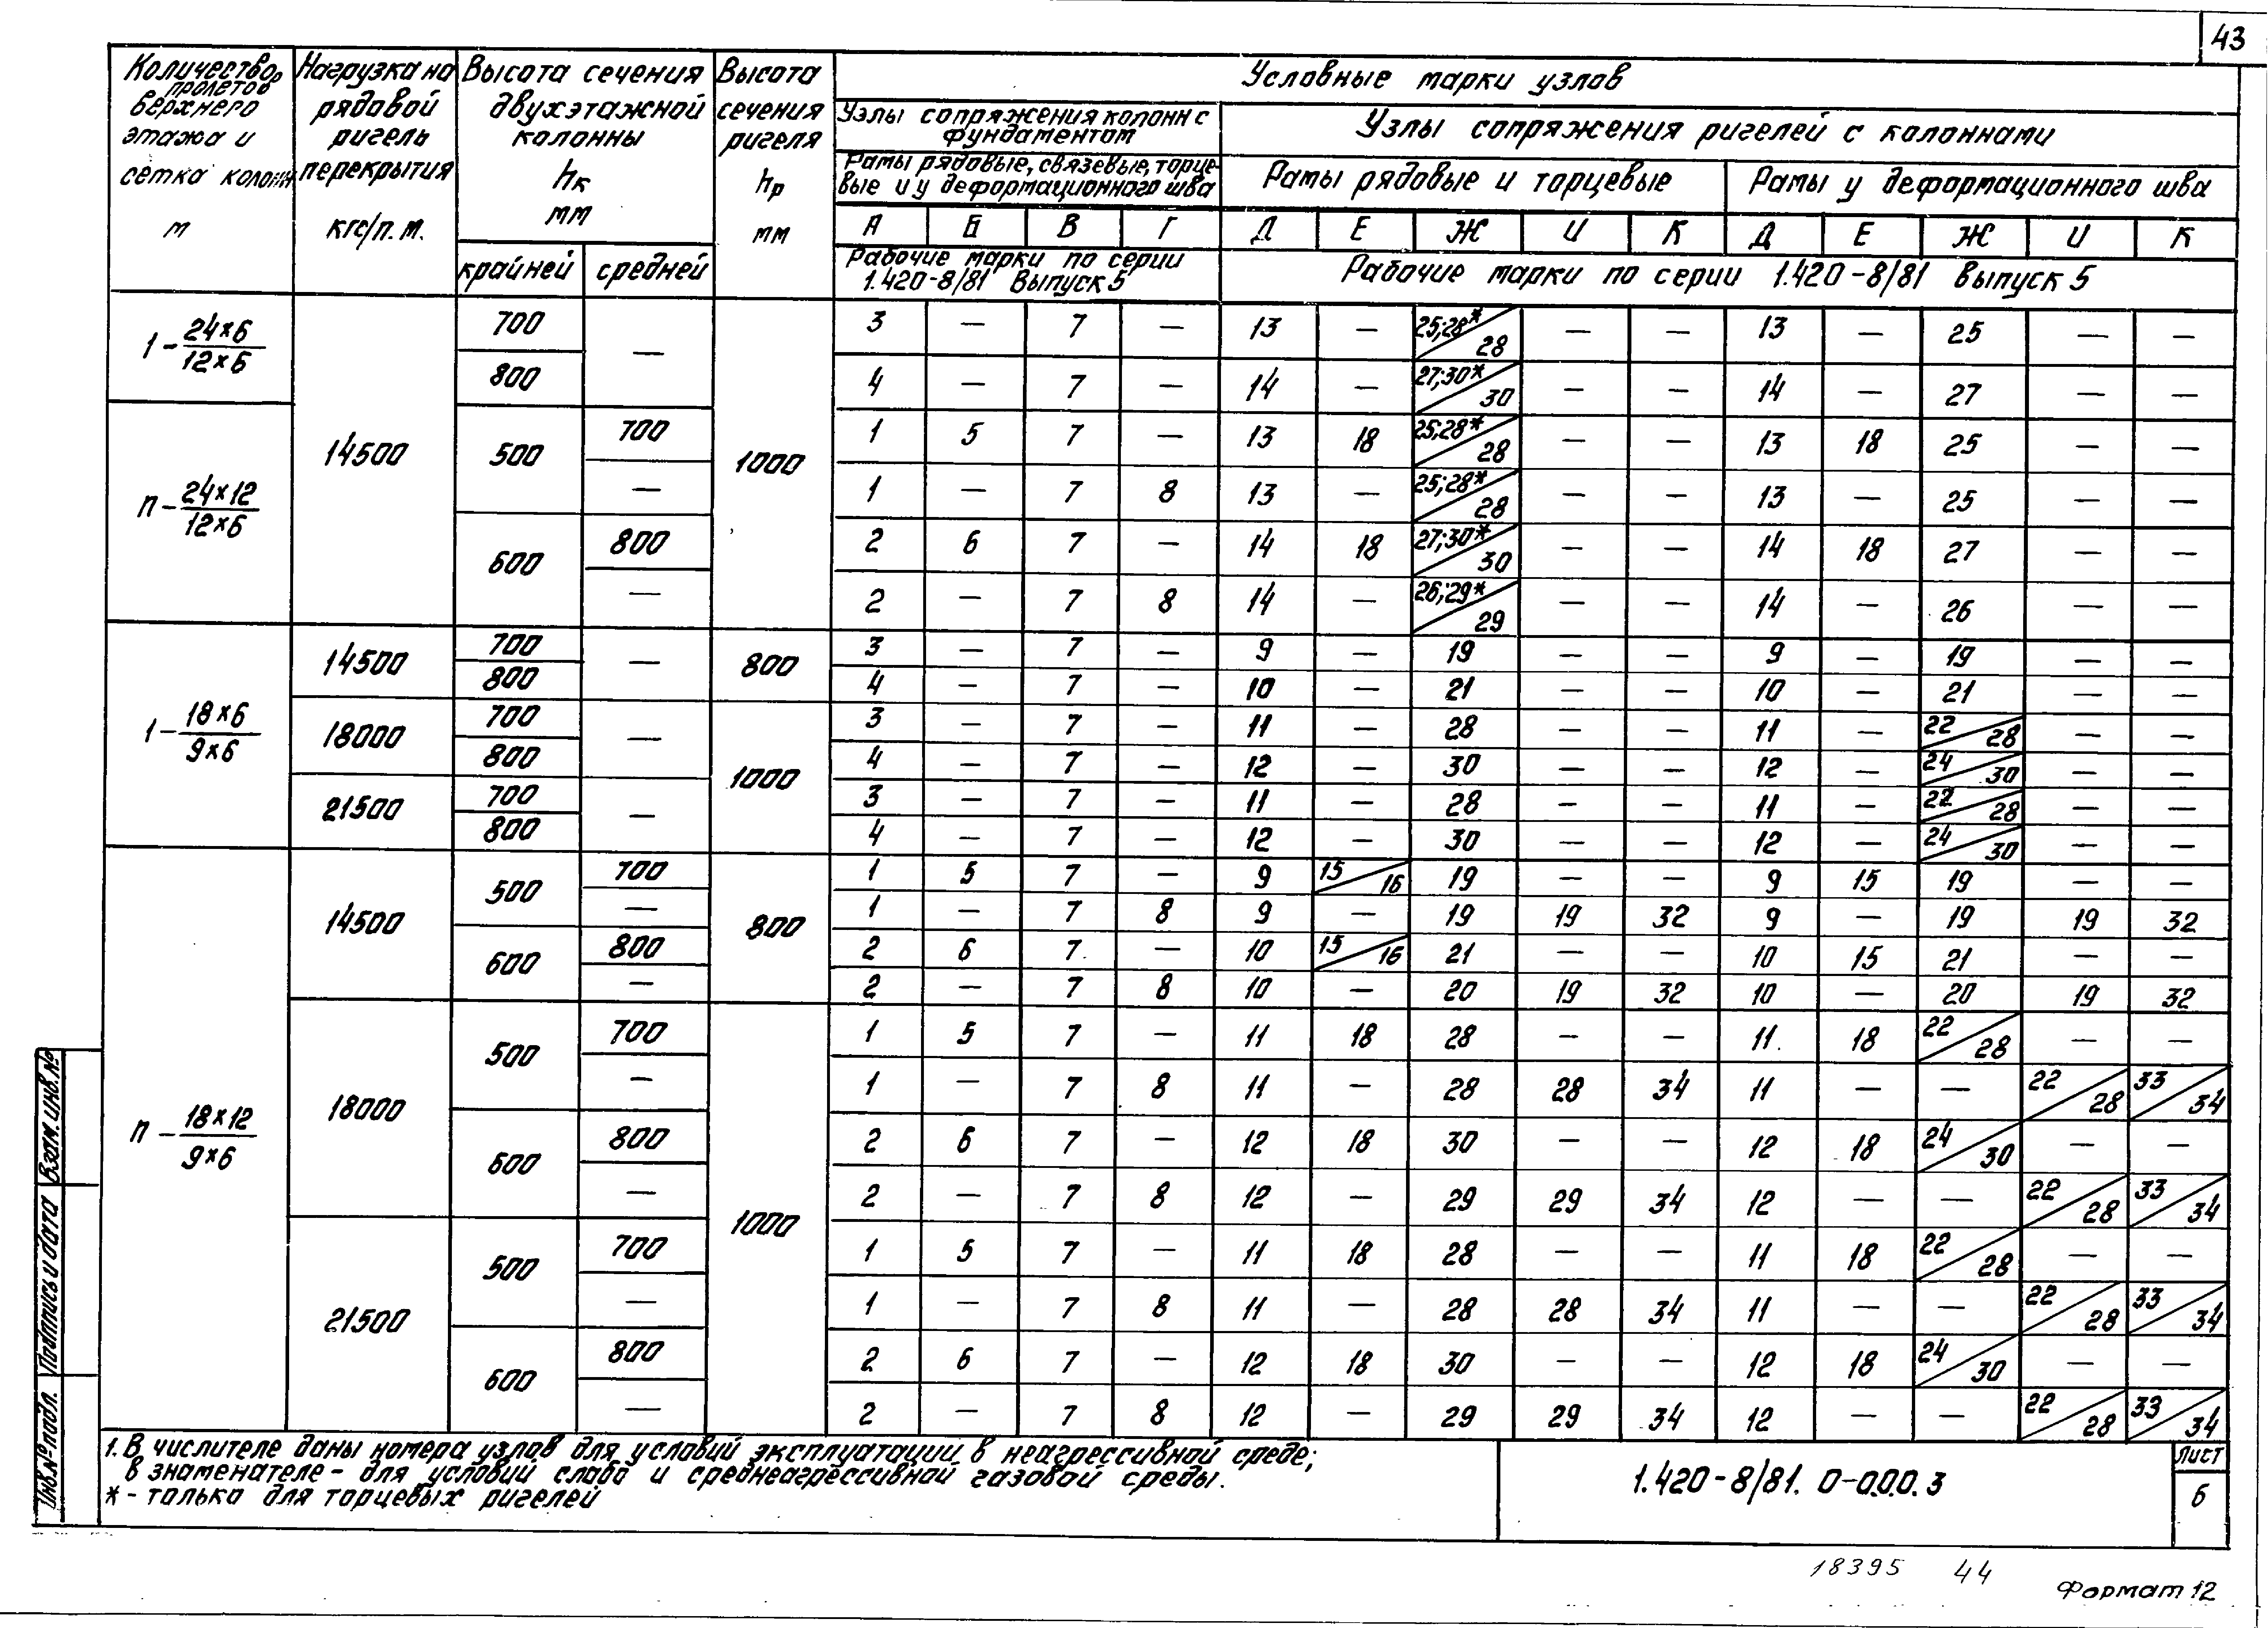 43
Количество пролетов верхнего этажа и сетка колонн м
Нагрузка на рядовой ригель перекрытия кгс/п.м.
Высота сечения двухэтажной колонны hк мм
крайней средней
Высота сечения ригеля hр мм
Условные марки узлов
Узлы сопряжения колонн с фундаментом
Узлы сопряжения ригелей с колоннами
Рамы рядовые, связевые, торцевые и у деформационного шва
Рамы рядовые и торцевые
Рамы у деформационного шва
А Б В Г Д Е Ж И К Д Е Ж И К
Рабочие марки по серии 1.420-8/81 Выпуск 5
Рабочие марки по серии 1.420-8/81 Выпуск 5
1-24×6/12×6 14500 700 — 1000 3 — 7 — 13 — 25;28*/28 — — 13 — 25 — —
800 4 — 7 — 14 — 27;30*/30 — — 14 — 27 — —
п-24×12/12×6 500 700 1 5 7 — 13 18 25;28*/28 — — 13 18 25 — —
— 1 — 7 8 13 — 25;28*/28 — — 13 — 25 — —
600 800 2 6 7 — 14 18 27;30*/30 — — 14 18 27 — —
— 2 — 7 8 14 — 26;29*/29 — — 14 — 26 — —
1-18×6/9×6 14500 700 — 800 3 — 7 — 9 — 19 — — 9 — 19 — —
800 4 — 7 — 10 — 21 — — 10 — 21 — —
18000 700 — 1000 3 — 7 — 11 — 28 — — 11 — 22/28 — —
800 4 — 7 — 12 — 30 — — 12 — 24/30 — —
21500 700 — 3 — 7 — 11 — 28 — — 11 — 22/28 — —
800 4 — 7 — 12 — 30 — — 12 — 24/30 — —
п-18×12/9×6 14500 500 700 800 1 5 7 — 9 15/16 19 — — 9 15 19 — —
— 1 — 7 8 9 — 19 19 32 9 — 19 19 32
600 800 2 6 7 — 10 15/16 21 — — 10 15 21 — —
— 2 — 7 8 10 — 20 19 32 10 — 20 19 32
18000 500 700 1000 1 5 7 — 11 18 28 — — 11 18 22/28 — —
— 1 — 7 8 11 — 28 28 34 11 — — 22/28 33/34
600 800 2 6 7 — 12 18 30 — — 12 18 24/30 — —
— 2 — 7 8 12 — 29 29 34 12 — — 22/28 33/34
21500 500 700 1 5 7 — 11 18 28 — — 11 18 22/28 — —
— 1 — 7 8 11 — 28 28 34 11 — — 22/28 33/34
600 800 2 6 7 — 12 18 30 — — 12 18 24/30 — —
— 2 — 7 8 12 — 29 29 34 12 — — 22/28 33/34
1. В числителе даны номера узлов для условий эксплуатации в неагрессивной среде;
в знаменателе - для условий слабо и среднеагрессивной газовой среды.
* - только для торцевых ригелей
1.420-8/81. 0-0.0.0.3
Лист
6
Инв.№ подл. Подпись и дата Взам. инв.№
18395 44
Формат 12